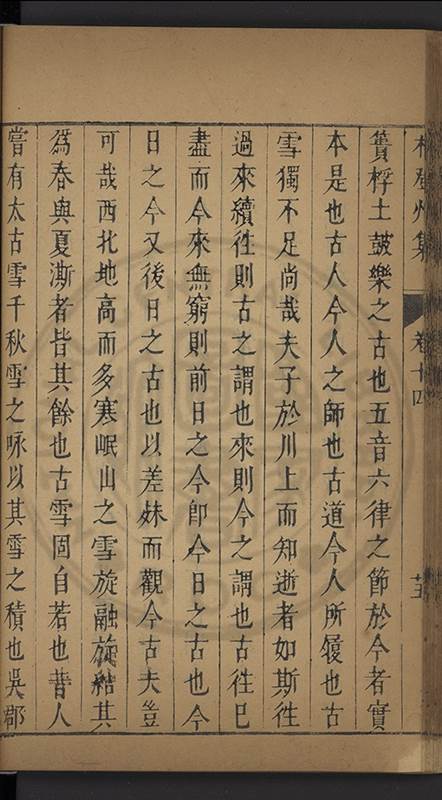 林登州集 卷十四 十五
蕢桴土鼓樂之古也五音六律之節於今者實
本是也古人今人之師也古道今人所履也古
雪獨不足尚哉夫子於川上而知逝者如斯徃
過來續徃則古之謂也來則今之謂也古徃已
盡而今來無窮則前日之今卽今日之古也今
日之今又後日之古也以差妹而觀今古夫豈
可哉西北地高而多寒岷山之雪旋融旋結其
爲春與夏澌者皆其餘也古雪固自若也昔人
嘗有太古雪千秋雪之咏以其雪之積也吳郡